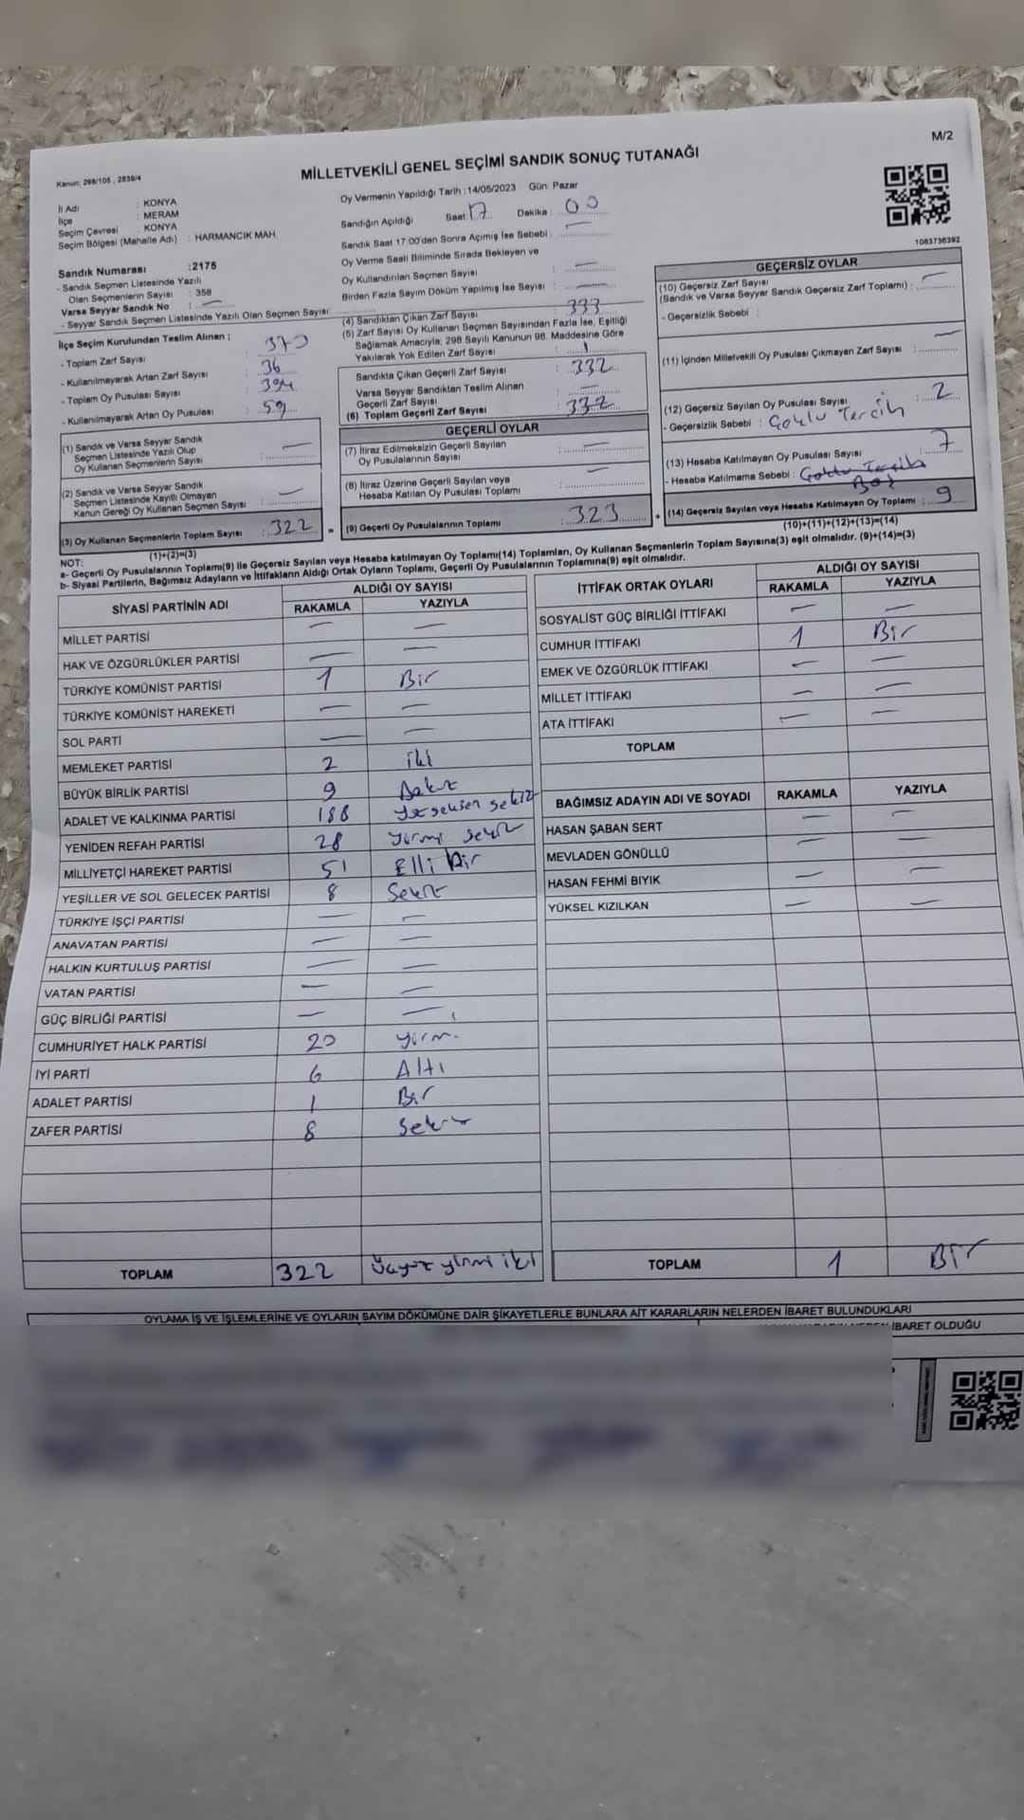 M/2
MİLLETVEKİLİ GENEL SEÇİMİ SANDIK SONUÇ TUTANAĞI
Kanun: 298/105 , 2839/4
İl Adı : KONYA
İlçe : MERAM
Seçim Çevresi : KONYA
Seçim Bölgesi (Mahalle Adı) : HARMANCIK MAH.
Sandık Numarası : 2175
- Sandık Seçmen Listesinde Yazılı
Olan Seçmenlerin Sayısı : 358
Varsa Seyyar Sandık No : —
- Seyyar Sandık Seçmen Listesinde Yazılı Olan Seçmen Sayısı
İlçe Seçim Kurulundan Teslim Alınan ;
- Toplam Zarf Sayısı 370
- Kullanılmayarak Artan Zarf Sayısı 36
- Toplam Oy Pusulası Sayısı 394
- Kullanılmayarak Artan Oy Pusulası 59
(1) Sandık ve Varsa Seyyar Sandık
Seçmen Listesinde Yazılı Olup
Oy Kullanan Seçmenlerin Sayısı —
(2) Sandık ve Varsa Seyyar Sandık
Seçmen Listesinde Kayıtlı Olmayan
Kanun Gereği Oy Kullanan Seçmen Sayısı —
(3) Oy Kullanan Seçmenlerin Toplam Sayısı : 322
(1)+(2)=(3)
Oy Vermenin Yapıldığı Tarih : 14/05/2023 Gün: Pazar
Sandığın Açıldığı Saat 17 Dakika : 00
Sandık Saat 17:00'den Sonra Açımış İse Sebebi : —
Oy Verme Saati Bitiminde Sırada Bekleyen ve
Oy Kullandırılan Seçmen Sayısı : —
Birden Fazla Sayım Döküm Yapılmış İse Sayısı : —
(4) Sandıktan Çıkan Zarf Sayısı : 333
(5) Zarf Sayısı Oy Kullanan Seçmen Sayısından Fazla İse, Eşitliği
Sağlamak Amacıyla; 298 Sayılı Kanunun 98. Maddesine Göre
Yakılarak Yok Edilen Zarf Sayısı : 1
Sandıkta Çıkan Geçerli Zarf Sayısı : 332
Varsa Seyyar Sandıktan Teslim Alınan
Geçerli Zarf Sayısı : —
(6) Toplam Geçerli Zarf Sayısı : 332
GEÇERLİ OYLAR
(7) İtiraz Edilmeksizin Geçerli Sayılan
Oy Pusulalarının Sayısı : —
(8) İtiraz Üzerine Geçerli Sayılan veya
Hesaba Katılan Oy Pusulası Toplamı : —
= (9) Geçerli Oy Pusulalarının Toplamı : 323
1083736392
GEÇERSİZ OYLAR
(10) Geçersiz Zarf Sayısı
(Sandık ve Varsa Seyyar Sandık Geçersiz Zarf Toplamı) : —
- Geçersizlik Sebebi :
(11) İçinden Milletvekili Oy Pusulası Çıkmayan Zarf Sayısı : —
(12) Geçersiz Sayılan Oy Pusulası Sayısı : 2
- Geçersizlik Sebebi : Çoklu Tercih
(13) Hesaba Katılmayan Oy Pusulası Sayısı : 7
- Hesaba Katılmama Sebebi : Çoklu Tercih
Boş
+ (14) Geçersiz Sayılan veya Hesaba Katılmayan Oy Toplamı : 9
(10)+(11)+(12)+(13)=(14)
NOT:
a- Geçerli Oy Pusulalarının Toplamı(9) ile Geçersiz Sayılan veya Hesaba katılmayan Oy Toplamı(14) Toplamları, Oy Kullanan Seçmenlerin Toplam Sayısına(3) eşit olmalıdır. (9)+(14)=(3)
b- Siyasi Partilerin, Bağımsız Adayların ve İttifakların Aldığı Ortak Oyların Toplamı, Geçerli Oy Pusulalarının Toplamına(9) eşit olmalıdır.
SİYASİ PARTİNİN ADI ALDIĞI OY SAYISI
RAKAMLA YAZIYLA
MİLLET PARTİSİ — —
HAK VE ÖZGÜRLÜKLER PARTİSİ — —
TÜRKİYE KOMÜNİST PARTİSİ 1 Bir
TÜRKİYE KOMÜNİST HAREKETİ — —
SOL PARTİ — —
MEMLEKET PARTİSİ 2 iki
BÜYÜK BİRLİK PARTİSİ 9 Dokuz
ADALET VE KALKINMA PARTİSİ 188 Yüzseksen sekiz
YENİDEN REFAH PARTİSİ 28 yirmi sekiz
MİLLİYETÇİ HAREKET PARTİSİ 51 Elli bir
YEŞİLLER VE SOL GELECEK PARTİSİ 8 Sekiz
TÜRKİYE İŞÇİ PARTİSİ — —
ANAVATAN PARTİSİ — —
HALKIN KURTULUŞ PARTİSİ — —
VATAN PARTİSİ — —
GÜÇ BİRLİĞİ PARTİSİ — —
CUMHURİYET HALK PARTİSİ 20 yirmi
İYİ PARTİ 6 Altı
ADALET PARTİSİ 1 Bir
ZAFER PARTİSİ 8 Sekiz
TOPLAM 322 Üçyüz yirmi iki
İTTİFAK ORTAK OYLARI ALDIĞI OY SAYISI
RAKAMLA YAZIYLA
SOSYALİST GÜÇ BİRLİĞİ İTTİFAKI — —
CUMHUR İTTİFAKI 1 Bir
EMEK VE ÖZGÜRLÜK İTTİFAKI — —
MİLLET İTTİFAKI — —
ATA İTTİFAKI — —
TOPLAM
BAĞIMSIZ ADAYIN ADI VE SOYADI RAKAMLA YAZIYLA
HASAN ŞABAN SERT — —
MEVLADEN GÖNÜLLÜ — —
HASAN FEHMİ BIYIK — —
YÜKSEL KIZILKAN — —
TOPLAM 1 BİR
OYLAMA İŞ VE İŞLEMLERİNE VE OYLARIN SAYIM DÖKÜMÜNE DAİR ŞİKAYETLERLE BUNLARA AİT KARARLARIN NELERDEN İBARET BULUNDUKLARI
İBARET OLDUĞU